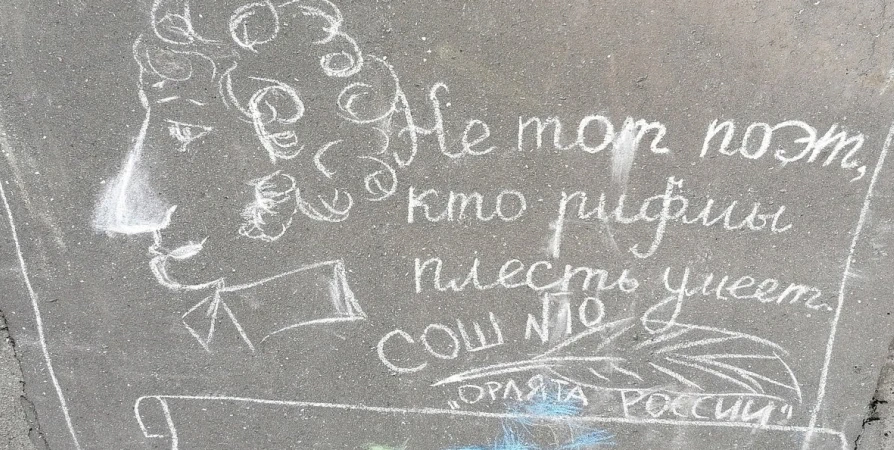 Не тот поэт,
кто рифмы
плесть умеет.
СОШ №10
"ОРЛЯТА РОССИИ"